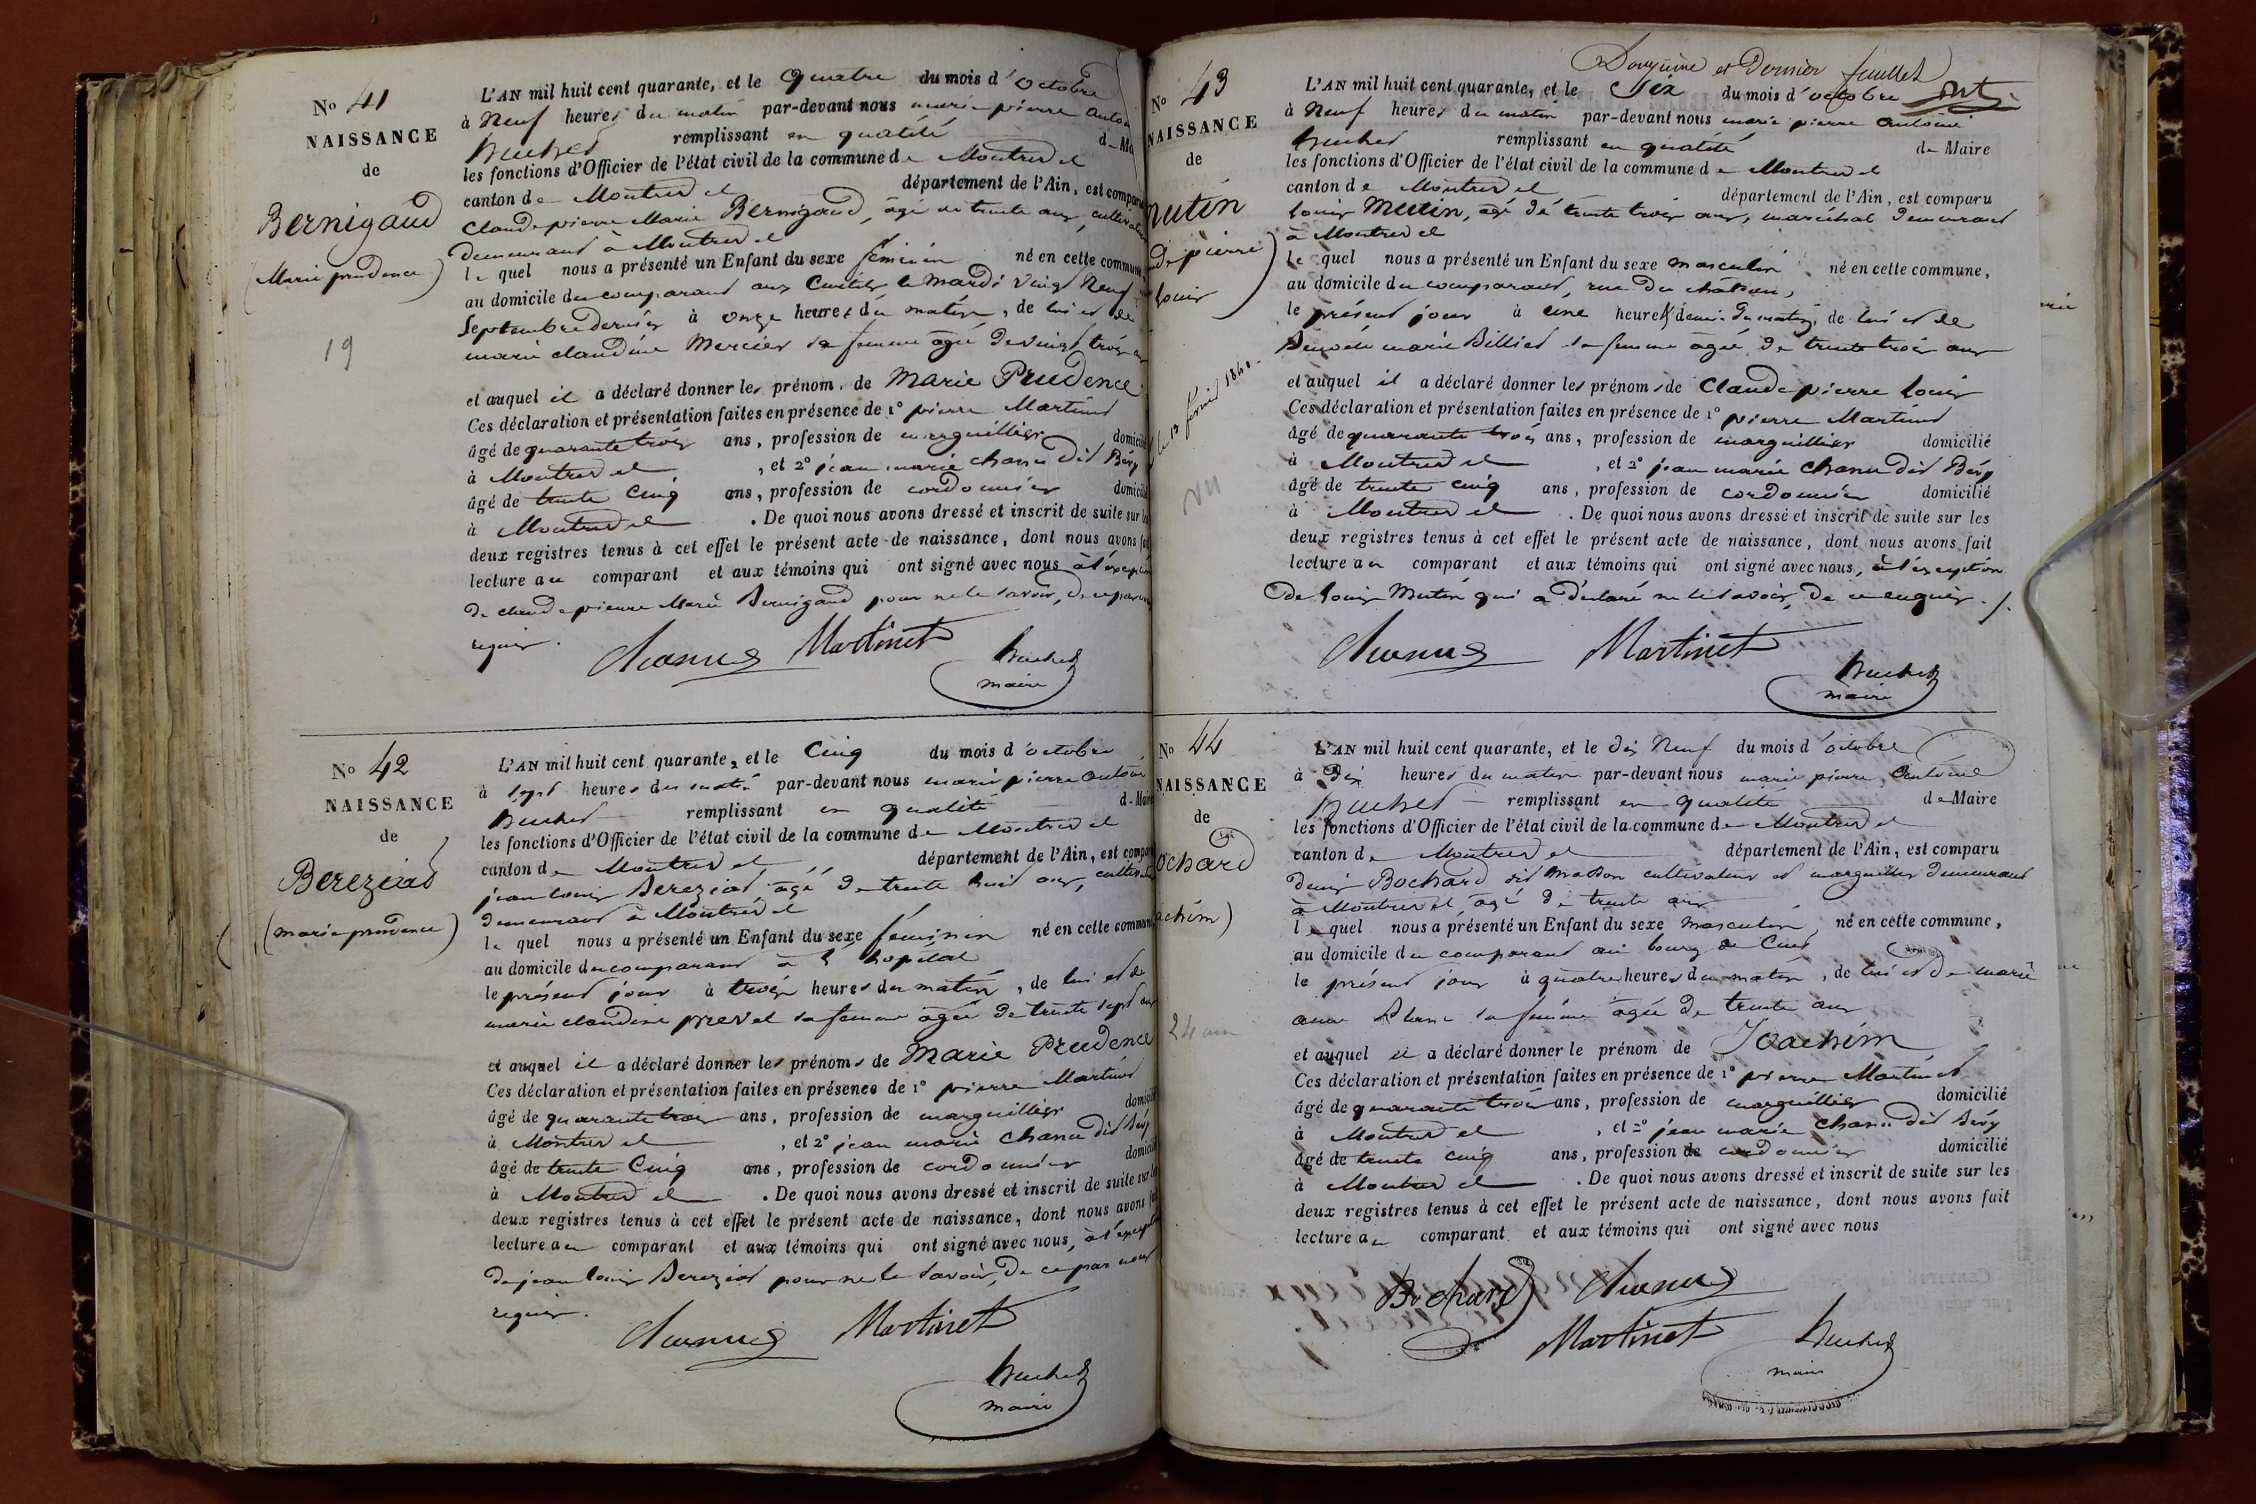 No 41
NAISSANCE
de
Bernigaud
(Marie prudence)
19
L'AN mil huit cent quarante, et le quatre du mois d'octobre
à Neuf heures du matin par-devant nous marie pierre anto
huchet remplissant en qualité de Ma
les fonctions d'Officier de l'état civil de la commune de Montrevel
canton de Montrevel département de l'Ain, est comparu
Claude pierre Marie Bernigaud, âgé de trente ans, cultivateur
demeurant à Montrevel
le quel nous a présenté un Enfant du sexe féminin né en cette commune
au domicile du comparant aux Curtils le mardi vingt Neuf
Septembre dernier à onze heures du matin, de lui et de
marie claudine Mercier sa femme âgée de vingt trois ans
et auquel il a déclaré donner les prénom de Marie Prudence
Ces déclaration et présentation faites en présence de 1° pierre Martinet
âgé de quarante trois ans, profession de marguillier domicilié
à Montrevel, et 2° jean marie Chanu dit Bévy
âgé de trente Cinq ans, profession de cordonnier domicilié
à Montrevel. De quoi nous avons dressé et inscrit de suite sur les
deux registres tenus à cet effet le présent acte de naissance, dont nous avons fait
lecture au comparant et aux témoins qui ont signé avec nous à l'exception
de claude pierre Marie Bernigaud pour ne le savoir, de ce par nous
requis.
Chanu Martinet huchet
maire
No 42
NAISSANCE
de
Bereziat
(marie prudence)
L'AN mil huit cent quarante, et le Cinq du mois d'octobre
à sept heures du matin par-devant nous marie pierre antoine
huchet remplissant en qualité de Maire
les fonctions d'Officier de l'état civil de la commune de Montrevel
canton de Montrevel département de l'Ain, est comparu
jean louis Bereziat, âgé de trente huit ans, cultivateur
demeurant à Montrevel
le quel nous a présenté un Enfant du sexe féminin né en cette commune
au domicile du comparant à l'hopital
le présent jour à trois heures du matin, de lui et de
marie claudine prevel sa femme âgée de trente sept ans
et auquel il a déclaré donner les prénoms de Marie Prudence
Ces déclaration et présentation faites en présence de 1° pierre Martinet
âgé de quarante trois ans, profession de marguillier domicilié
à Montrevel, et 2° jean marie Chanu dit Bévy
âgé de trente Cinq ans, profession de cordonnier domicilié
à Montrevel. De quoi nous avons dressé et inscrit de suite sur les
deux registres tenus à cet effet le présent acte de naissance, dont nous avons fait
lecture au comparant et aux témoins qui ont signé avec nous, à l'exception
de jean louis Bereziat pour ne le savoir, de ce par nous
requis.
Chanu Martinet
huchet
maire
Douzième et Dernier feuillet
No 43
NAISSANCE
de
mutin
de pierre
louis)
février 1840
L'AN mil huit cent quarante, et le Six du mois d'octobre
à Neuf heures du matin par-devant nous marie pierre antoine
huchet remplissant en qualité de Maire
les fonctions d'Officier de l'état civil de la commune de Montrevel
canton de Montrevel département de l'Ain, est comparu
louis Mutin, âgé de trente trois ans, maréchal demeurant
à Montrevel
le quel nous a présenté un Enfant du sexe masculin né en cette commune,
au domicile du comparant, rue du château,
le présent jour à une heure & demie du matin, de lui et de
marie Billiet sa femme âgée de trente trois ans
et auquel il a déclaré donner les prénoms de Claude pierre louis
Ces déclaration et présentation faites en présence de 1° pierre Martinet
âgé de quarante trois ans, profession de marguillier domicilié
à Montrevel, et 2° jean marie Chanu dit Bévy
âgé de trente cinq ans, profession de cordonnier domicilié
à Montrevel. De quoi nous avons dressé et inscrit de suite sur les
deux registres tenus à cet effet le présent acte de naissance, dont nous avons fait
lecture au comparant et aux témoins qui ont signé avec nous, à l'exception
de louis Mutin qui a déclaré ne le savoir, de ce enquis ./.
Chanu Martinet huchet
maire
No 44
NAISSANCE
de
ochard
achim)
24
L'AN mil huit cent quarante, et le dix Neuf du mois d'octobre
à Dix heures du matin par-devant nous marie pierre Antoine
huchet remplissant en qualité de Maire
les fonctions d'Officier de l'état civil de la commune de Montrevel
canton de Montrevel département de l'Ain, est comparu
denis Bochard dit Masson cultivateur et marguillier demeurant
à Montrevel âgé de trente ans
le quel nous a présenté un Enfant du sexe masculin né en cette commune,
au domicile du comparant au bourg de Cuet
le présent jour à quatre heures du matin, de lui et de marie
anne sa femme âgée de trente ans
et auquel il a déclaré donner le prénom de Joachim
Ces déclaration et présentation faites en présence de 1° pierre Martinet
âgé de quarante trois ans, profession de marguillier domicilié
à Montrevel, et 2° jean marie Chanu dit Bévy
âgé de trente cinq ans, profession de cordonnier domicilié
à Montrevel. De quoi nous avons dressé et inscrit de suite sur les
deux registres tenus à cet effet le présent acte de naissance, dont nous avons fait
lecture au comparant et aux témoins qui ont signé avec nous
Bochard Chanu
Martinet huchet
maire